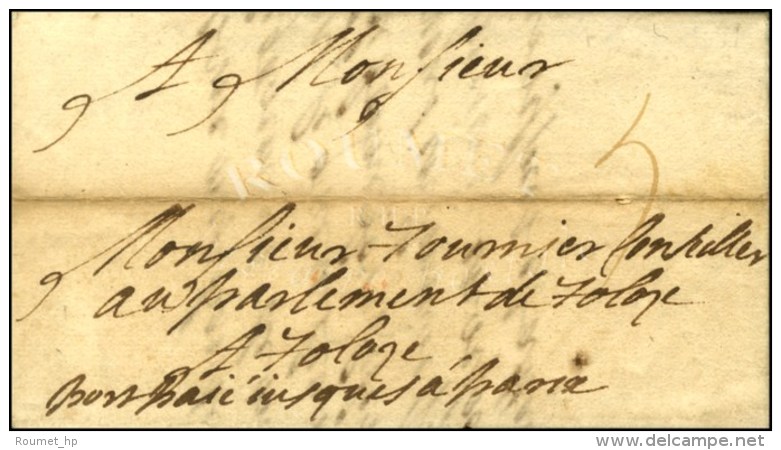 A Monsieur
5
Monsieur Tournier Conseiller
au parlement de Toloze
A Toloze
port paié iusques a paris
Roumet_hp
delcampe.net